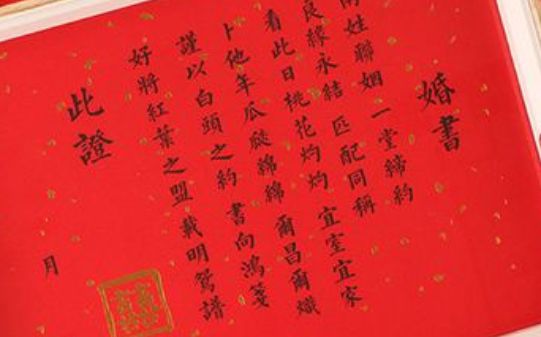 婚書
兩姓聯姻 一堂締約
良緣永結 匹配同稱
看此日桃花灼灼 宜室宜家
卜他年瓜瓞綿綿 爾昌爾熾
謹以白頭之約 書向鴻箋
好將紅葉之盟 載明鴛譜
此證
月
囍